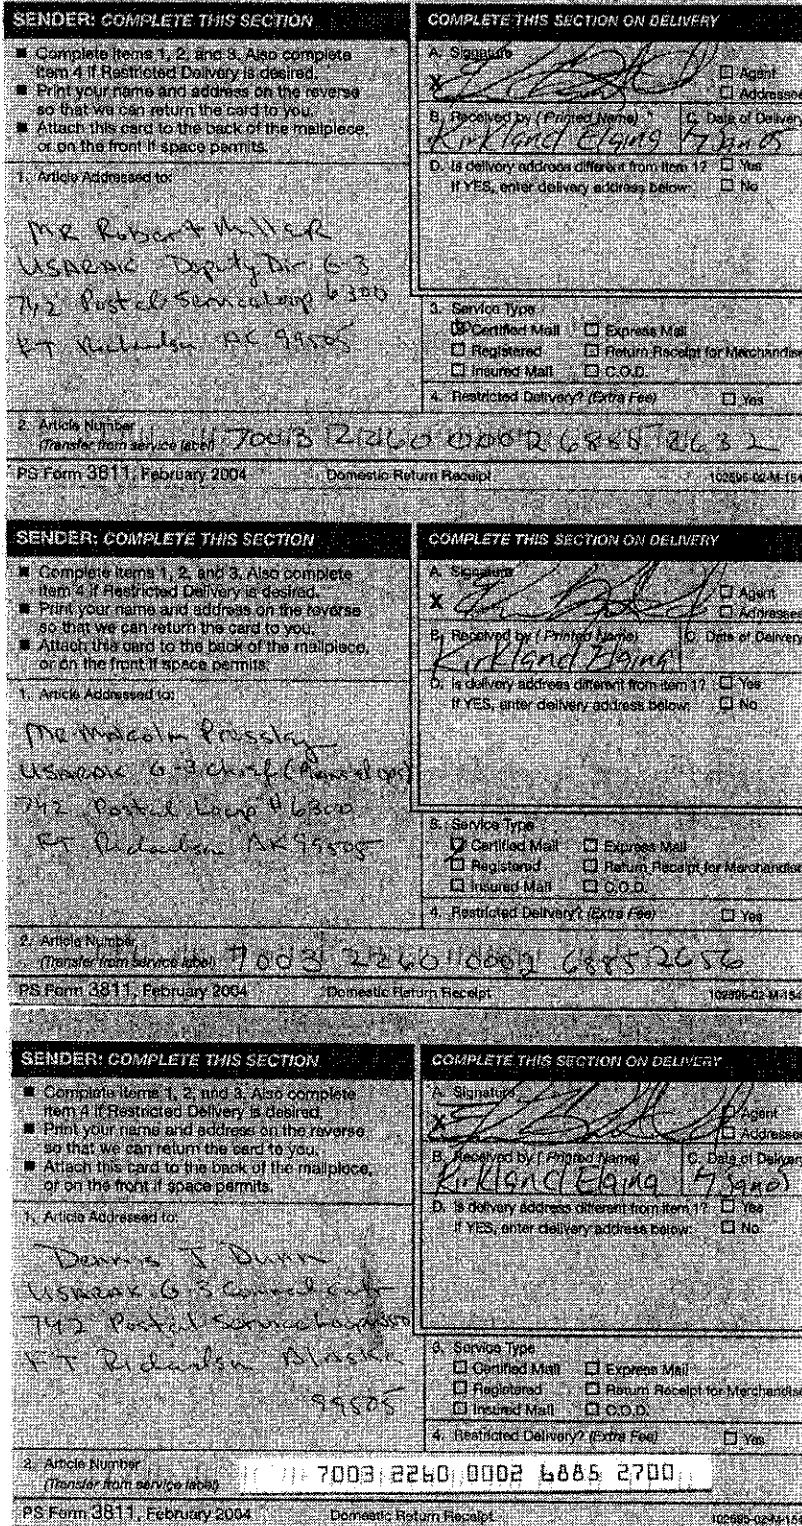 SENDER: COMPLETE THIS SECTION
■ Complete items 1, 2, and 3. Also complete
item 4 if Restricted Delivery is desired.
■ Print your name and address on the reverse
so that we can return the card to you.
■ Attach this card to the back of the mailpiece,
or on the front if space permits.
1. Article Addressed to:
Mr Robert Miller
USARAK Deputy Dir G-3
742 Postal Service Loop 6300
FT Richardson AK 99505
2. Article Number
(Transfer from service label) 7003 2260 0002 6885 2632
COMPLETE THIS SECTION ON DELIVERY
A. Signature
X
☐ Agent
☐ Addressee
B. Received by (Printed Name)
C. Date of Delivery
Kirkland Elaina 7 Jan 05
D. Is delivery address different from item 1? ☐ Yes
If YES, enter delivery address below: ☐ No
3. Service Type
☒ Certified Mail ☐ Express Mail
☐ Registered ☐ Return Receipt for Merchandise
☐ Insured Mail ☐ C.O.D.
4. Restricted Delivery? (Extra Fee) ☐ Yes
PS Form 3811, February 2004 Domestic Return Receipt 102595-02-M-154
SENDER: COMPLETE THIS SECTION
■ Complete items 1, 2, and 3. Also complete
item 4 if Restricted Delivery is desired.
■ Print your name and address on the reverse
so that we can return the card to you.
■ Attach this card to the back of the mailpiece,
or on the front if space permits.
1. Article Addressed to:
Mr Malcolm Pressley
USARAK G-3 Chief
742 Postal Loop #6300
FT Richardson AK 99505
2. Article Number
(Transfer from service label) 7003 2260 0002 6885 2656
COMPLETE THIS SECTION ON DELIVERY
A. Signature
X
☐ Agent
☐ Addressee
B. Received by (Printed Name)
C. Date of Delivery
Kirkland Elaina
D. Is delivery address different from item 1? ☐ Yes
If YES, enter delivery address below: ☐ No
3. Service Type
☒ Certified Mail ☐ Express Mail
☐ Registered ☐ Return Receipt for Merchandise
☐ Insured Mail ☐ C.O.D.
4. Restricted Delivery? (Extra Fee) ☐ Yes
PS Form 3811, February 2004 Domestic Return Receipt 102595-02-M-154
SENDER: COMPLETE THIS SECTION
■ Complete items 1, 2, and 3. Also complete
item 4 if Restricted Delivery is desired.
■ Print your name and address on the reverse
so that we can return the card to you.
■ Attach this card to the back of the mailpiece,
or on the front if space permits.
1. Article Addressed to:
Dennis J Dunn
USARAK G-3
742 Postal Service Loop
FT Richardson Alaska
99505
2. Article Number
(Transfer from service label) 7003 2260 0002 6885 2700
COMPLETE THIS SECTION ON DELIVERY
A. Signature
X
☐ Agent
☐ Addressee
B. Received by (Printed Name)
C. Date of Delivery
Kirkland Elaina 7 Jan 05
D. Is delivery address different from item 1? ☐ Yes
If YES, enter delivery address below: ☐ No
3. Service Type
☐ Certified Mail ☐ Express Mail
☐ Registered ☐ Return Receipt for Merchandise
☐ Insured Mail ☐ C.O.D.
4. Restricted Delivery? (Extra Fee) ☐ Yes
PS Form 3811, February 2004 Domestic Return Receipt 102595-02-M-154